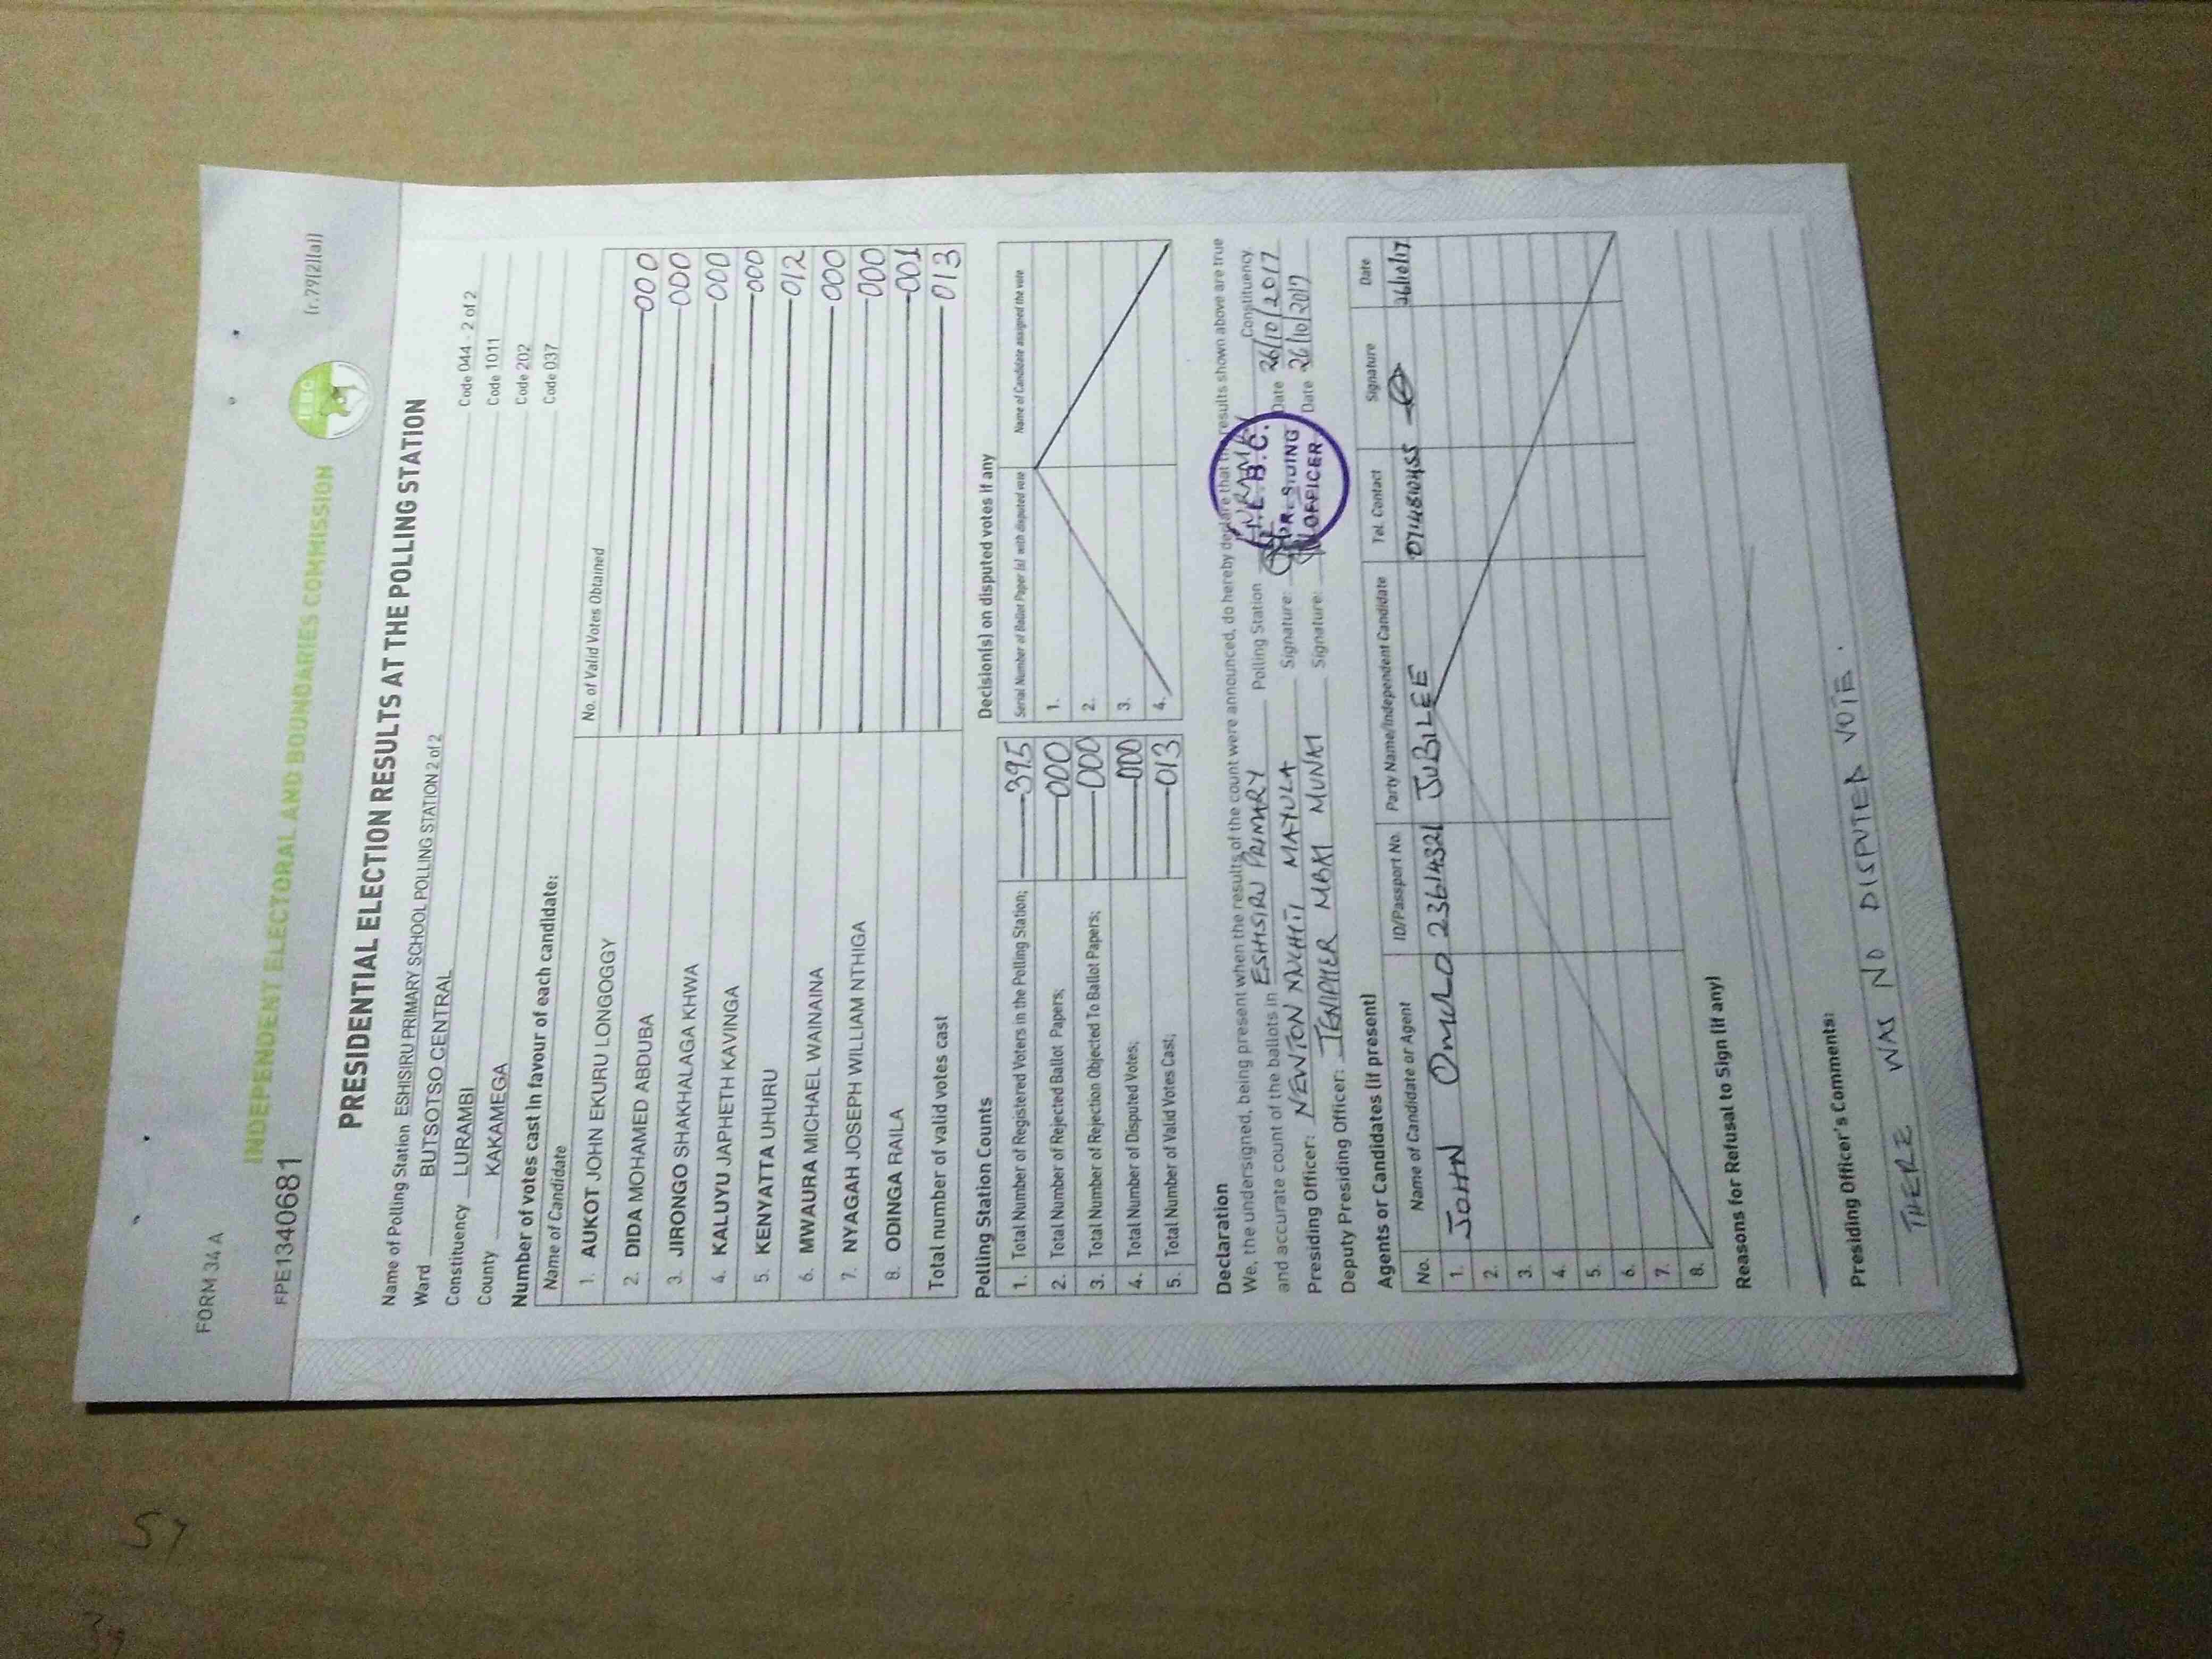 FORM 34 A
(r.79(2)(a))
FPE1340681
INDEPENDENT ELECTORAL AND BOUNDARIES COMMISSION
IEBC
PRESIDENTIAL ELECTION RESULTS AT THE POLLING STATION
Name of Polling Station ESHISIRU PRIMARY SCHOOL POLLING STATION 2 of 2 Code 044 - 2 of 2
Ward BUTSOTSO CENTRAL Code 1011
Constituency LURAMBI Code 202
County KAKAMEGA Code 037
Number of votes cast in favour of each candidate:
Name of Candidate No. of Valid Votes Obtained
1. AUKOT JOHN EKURU LONGOGGY 000
2. DIDA MOHAMED ABDUBA 000
3. JIRONGO SHAKHALAGA KHWA 000
4. KALUYU JAPHETH KAVINGA 000
5. KENYATTA UHURU 012
6. MWAURA MICHAEL WAINAINA 000
7. NYAGAH JOSEPH WILLIAM NTHIGA 000
8. ODINGA RAILA 001
Total number of valid votes cast 013
Polling Station Counts
1. Total Number of Registered Voters in the Polling Station; 395
2. Total Number of Rejected Ballot Papers; 000
3. Total Number of Rejection Objected To Ballot Papers; 000
4. Total Number of Disputed Votes; 000
5. Total Number of Valid Votes Cast; 013
Decision(s) on disputed votes if any
Serial Number of Ballot Paper (s) with disputed vote Name of Candidate assigned the vote
1.
2.
3.
4.
Declaration
We, the undersigned, being present when the results of the count were announced, do hereby declare that the results shown above are true
and accurate count of the ballots in ESHISIRU PRIMARY Polling Station LURAMBI Constituency.
Presiding Officer: NEWTON MAYULA Signature: Date 26/10/2017
Deputy Presiding Officer: JENIPHER MBAKI MUNAI Signature: Date 26/10/2017
I.E.B.C.
PRESIDING
OFFICER
Agents or Candidates (if present)
No. Name of Candidate or Agent ID/Passport No. Party Name/Independent Candidate Tel. Contact Signature Date
1. JOHN OMULO 23614321 JUBILEE 0714810455 26/10/17
2.
3.
4.
5.
6.
7.
8.
Reasons for Refusal to Sign (if any)
Presiding Officer's Comments:
THERE WAS NO DISPUTED VOTE.
57